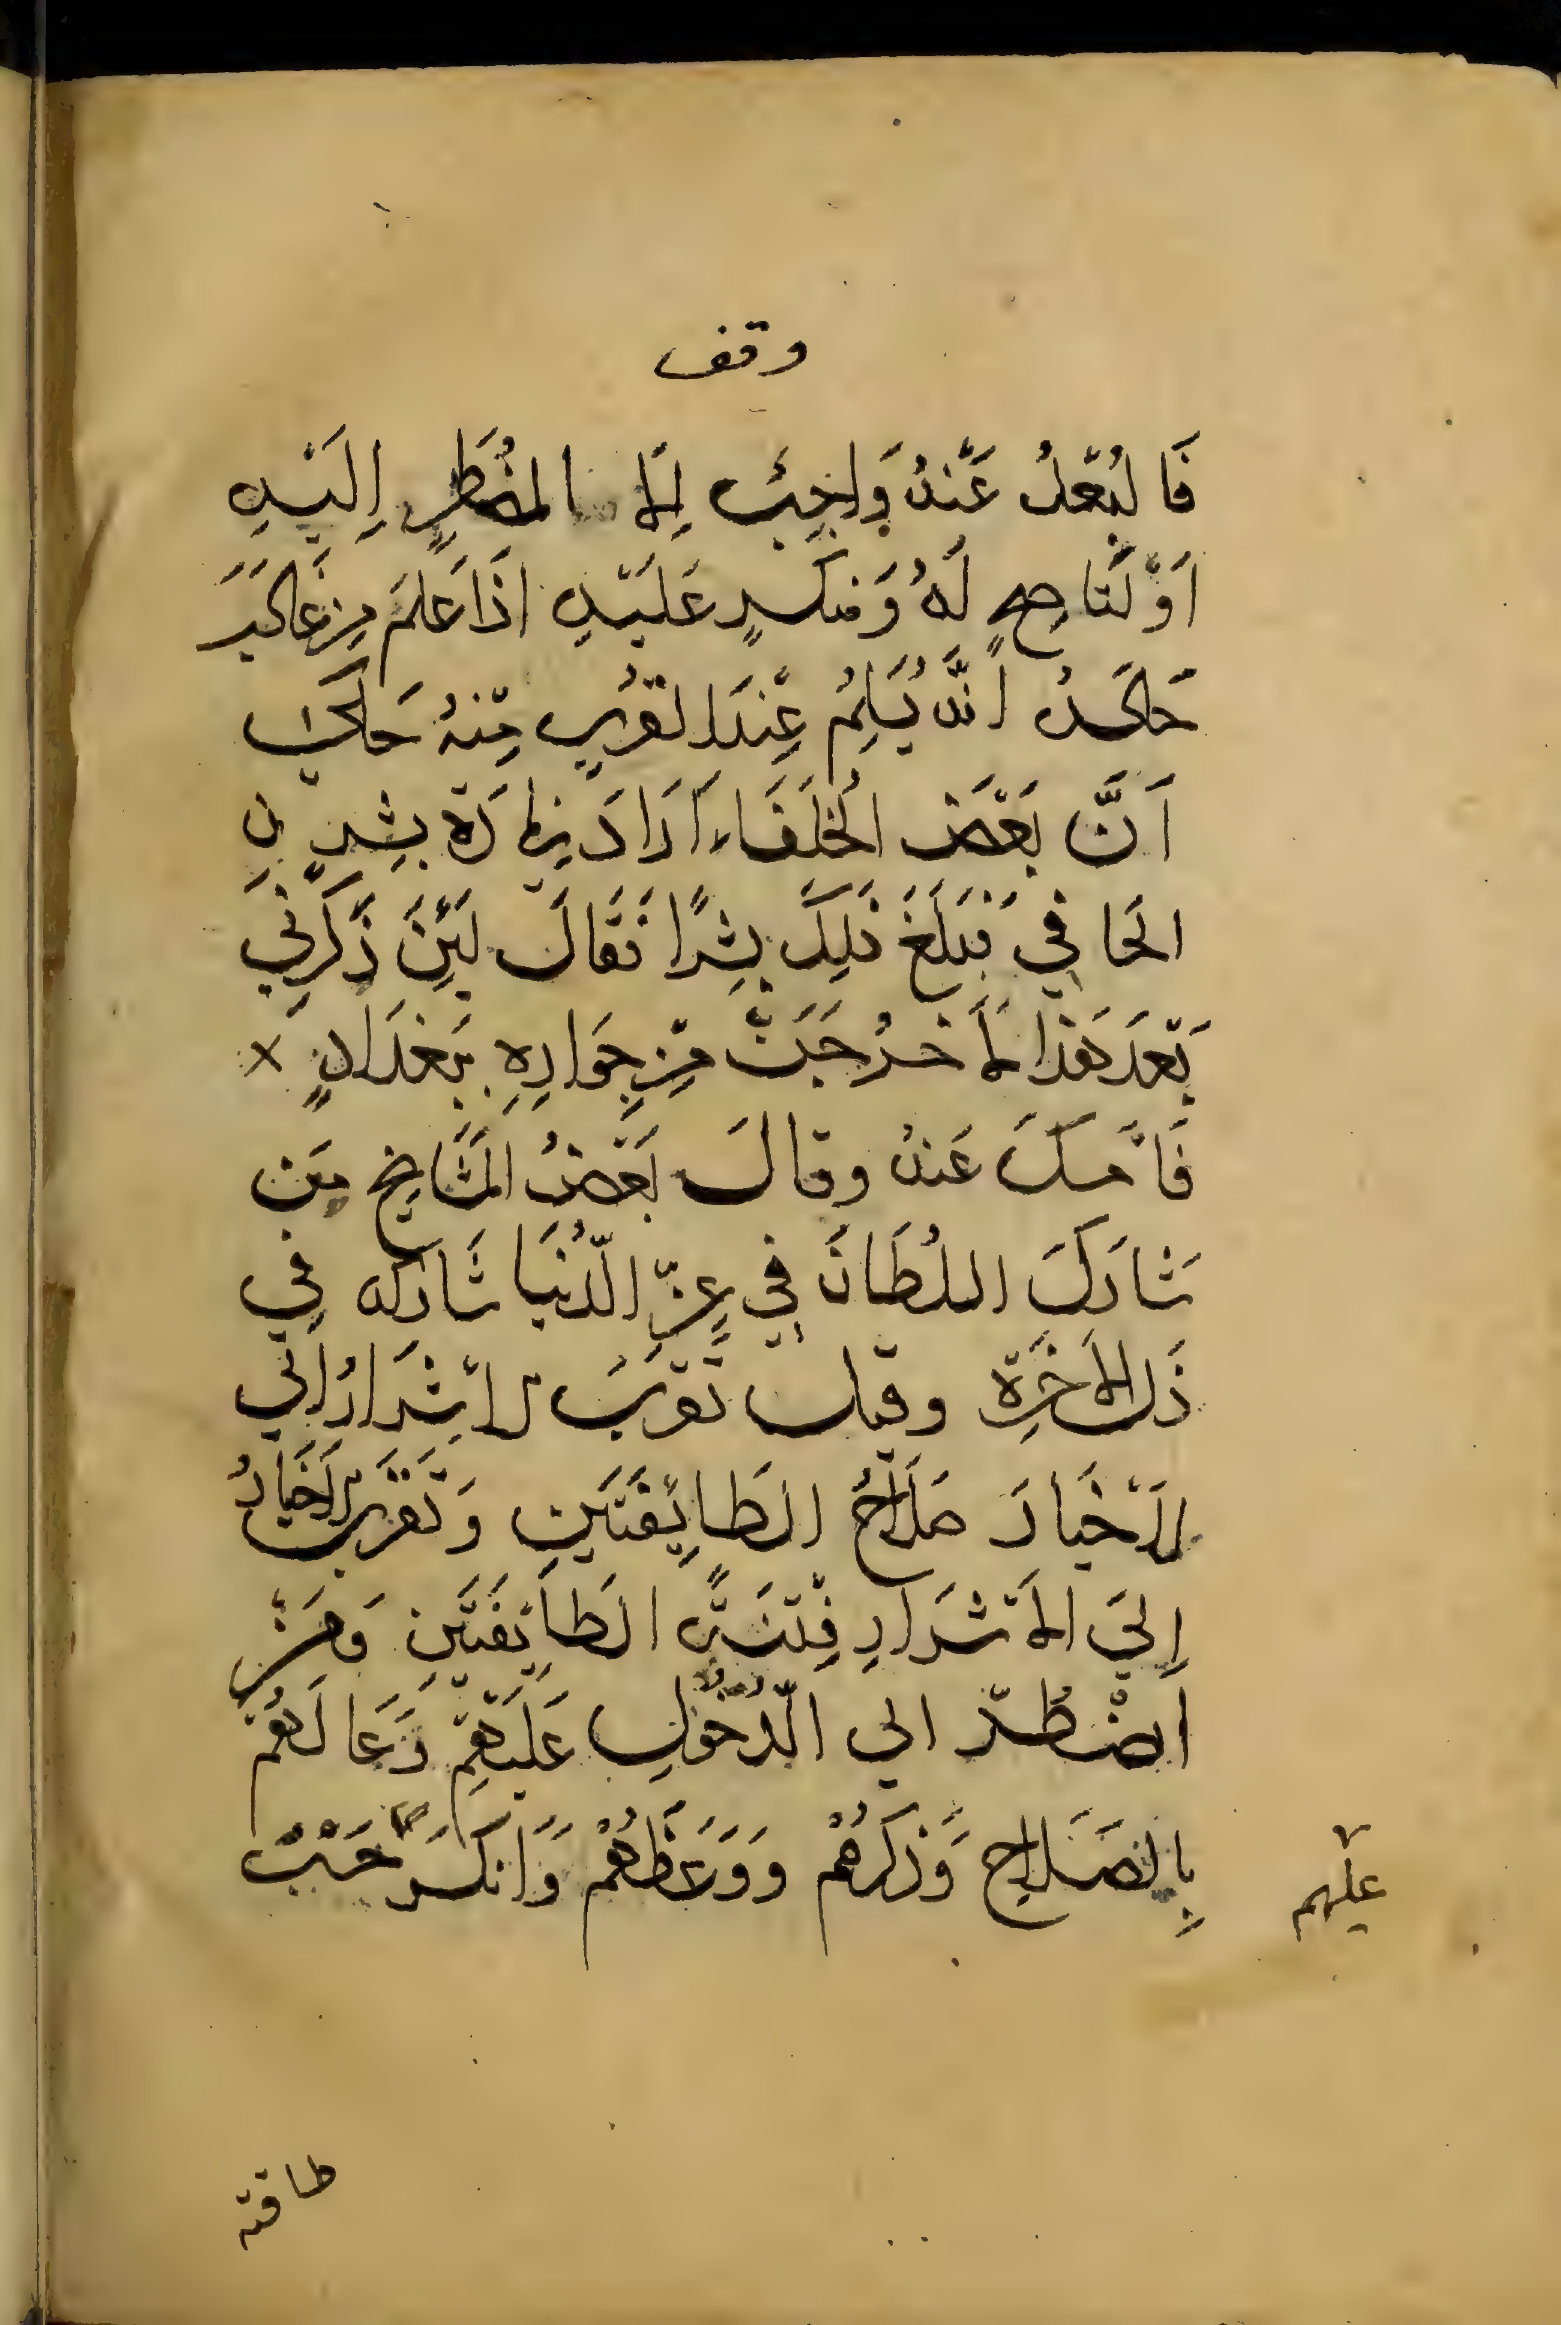 وقف
فَالبُعْدُ عَنْهُ وَاجِبٌ اِلا المضُطَرٍ اِلَيْهِ
اَوْ لنَاصِحٍ لَهُ وَمنكرٍ عَلَيْهِ اذَا عَلمَ مِن غَالبِ
حَالهُ انَّه يُسَلِمُ عِنْدَ القرُبِ مِنْهُ حَكى
اَنَّ بَعْضَ الخُلَفَاءِ اَرَادَ زيارَة بِشرِ بن
الحَافي فَبَلَغَ ذَلِكَ بِشرًا فَقَالَ لَئِنْ ذَكَرَنِي
بَعْدَ هَذا لاَخرُجَنَّ مِن جِوَارِهِ بِبَغدَادٍ
فَاَمْسَكَ عَنهُ وقالَ بَعْضُ المَشَايخ مَن
شَارَكَ السُلطَانَ في عِزِّ الدُّنيَا شَارَكه في
ذَل الاَخَرِة وقيل تقرُبَ الاشْرَارُ الي
الاَخْيارَ صَلاَحُ الطَايِفَتَيَنِ وَتَقَرُب الاَخيَارُ
اِليَ الاشْرَارِ فِتْنَةً الطَايَفَتَيِنِ وَمَنْ
اضْطُرّ الي الدُّخُولِ عَلَيْهِمْ دَعَا لَهُمْ
بِالصَلاَحِ وَذَكرَهُمْ وَوَعَظَهُمْ وَانكَرَ حَسْبَ
عليهم
طاقته